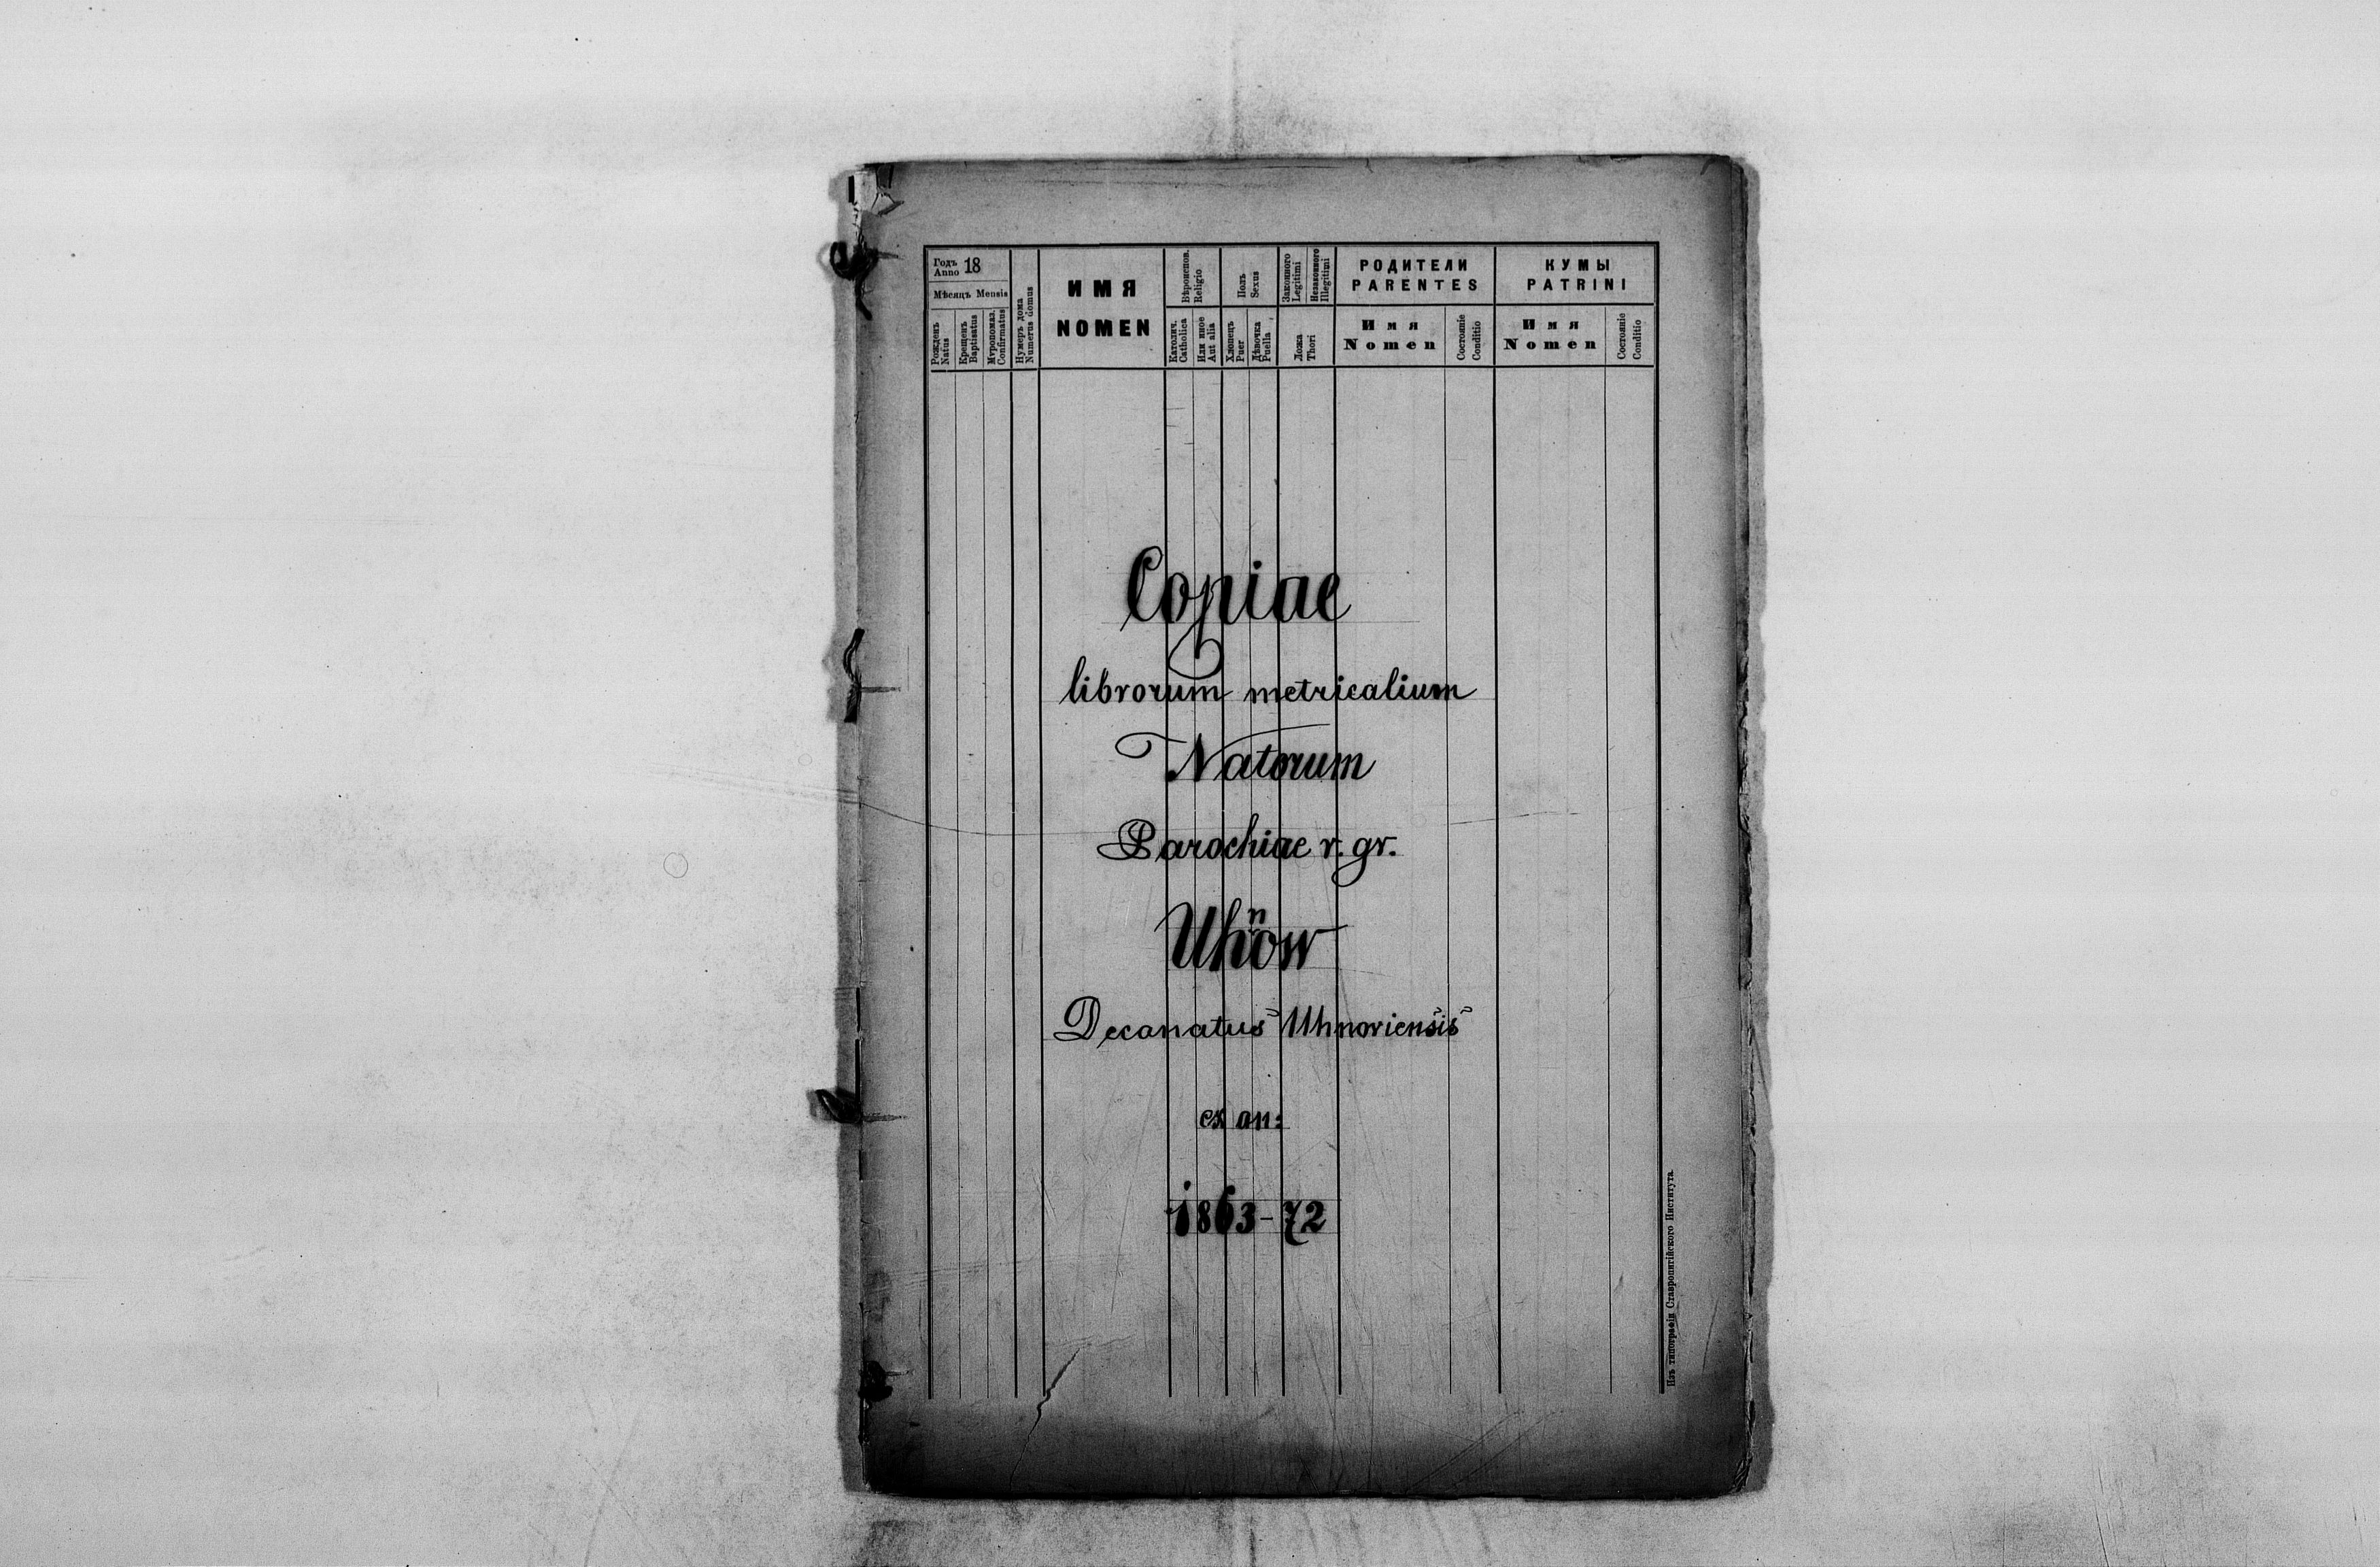 Годъ
Anno 18
Мѣсяцъ Mensis
Рожденъ
Natus
Крещенъ
Baptisatus
Мѵропомаз.
Confirmatus
Нумеръ дома
Numerus domus
ИМЯ
NOMEN
Вѣроиспов.
Religio
Католич.
Catholica
Или иное
Aut alia
Полъ
Sexus
Хлопецъ
Puer
Дѣвочка
Puella
Законного
Legitimi
Незаконного
Illegitimi
Ложа
Thori
РОДИТЕЛИ
PARENTES
Имя
Nomen
Состояніе
Conditio
КУМЫ
PATRINI
Имя
Nomen
Состояніе
Conditio
Copiae
librorum metricalium
Natorum
Parochiae r. gr.
Uhnow
Decanatus Uhnoviensis
ex an:
1863-72
Изъ типографіи Ставропигійского Института.